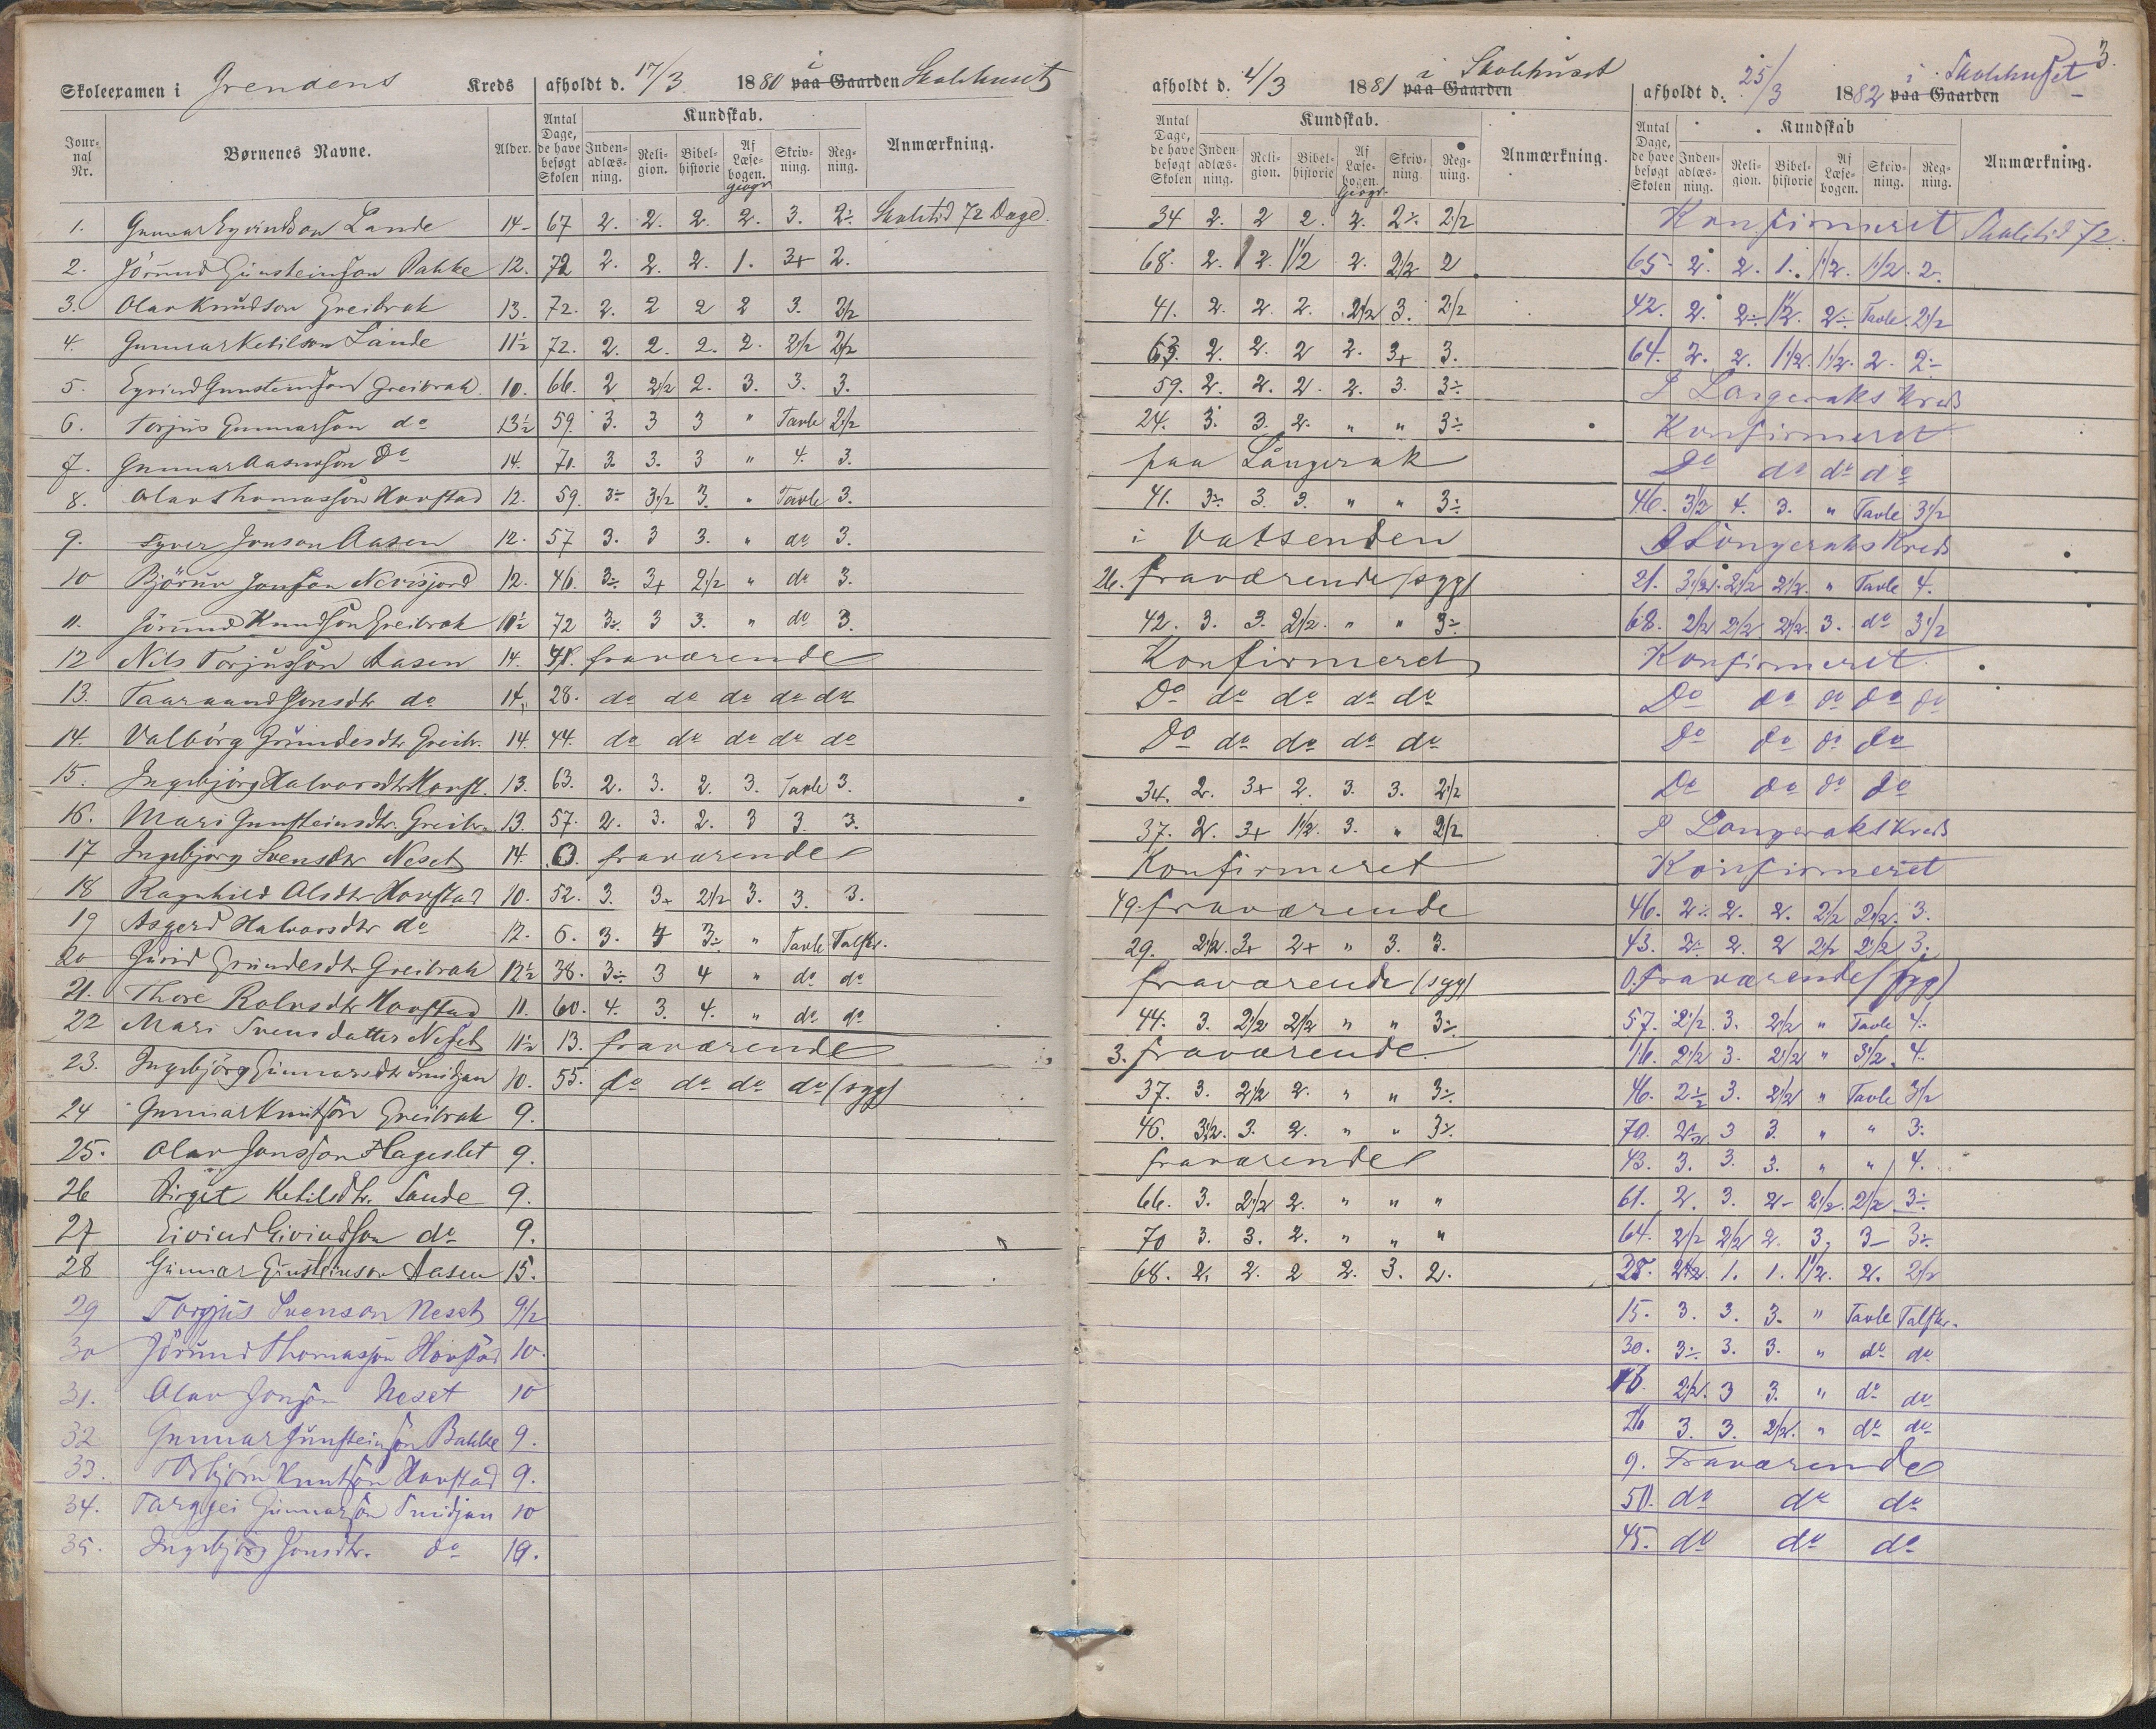 3.
Skoleexamen i Grendens Kreds afholdt d. 17/3 1880 i paa Gaarden Skolehuset
Jour-nal Nr. Børnenes Navne. Alder. Antal Dage, de have besøgt Skolen Kundskab. Anmærkning.
Inden-adlæs-ning. Reli-gion. Bibel-historie Af Læse-bogen. geogr Skriv-ning. Reg-ning.
1. Gunnar Eyvindson Lande 14- 67 2. 2. 2. 2. 3. 2÷ Skoletid 72 Dage.
2. Jörund Gunsteinson Bakke 12. 72 2. 2. 2. 1. 3+ 2.
3. Olav Knudson Greibrok 13. 72. 2. 2 2 2 3. 2½
4. Gunnar Ketilson Lande 11½ 72. 2. 2. 2. 2. 2½ 2½
5. Eyvind Gunsteinson Greibrok. 10. 66. 2 2½ 2. 3. 3. 3.
6. Torjus Gunnarson do 13½ 59. 3. 3 3 " Tavle 2½
7. Gunnar Aasmson Do 14. 70. 3. 3. 3 " 4. 3.
8. Olav Thomasson Hovstad 12. 59. 3÷ 3½ 3. " Tavle 3.
9. Syver Jonson Aasen 12. 57 3. 3 3. " do 3.
10 Björnv Jonson 12. 46. 3÷ 3+ 2½ " do 3.
11. Jörund Knudson Greibrok 10½ 72 3÷ 3 3. " do 3.
12 Nils Torjusson Aasen 14. 41. fraværende
13. Taaraand Jonsdtr do 14. 28. do do do do do
14. Valborg Grundesdtr Greibr. 14. 44. do do do do do
15. Ingebjörg Halvorsdtr Hovst. 13. 63. 2. 3. 2. 3. Tavle 3.
16. Mari Gunsteinsdtr. Greibr. 13. 57. 2. 3. 2. 3 3. 3.
17 Ingebjörg Svensdtr Neset 14. 0. fraværende
18 Ragnhild Olsdtr Hovstad 10. 52. 3. 3+ 2½ 3. 3. 3.
19 Asgerd Halvorsdtr do 12. 6. 3. 4 3÷ " Tavle Talskr.
20 Jurid Grundesdtr Greibrok 12½ 38. 3÷ 3 4 " do do
21. Thore Rolvsdtr Hovstad 11. 60. 4. 3. 4. " do do
22 Mari Svensdatter Neset 11½ 13. fraværende
23. Ingebjörg Gunnarsdtr Smidjan 10. 55. do do do do (syg)
24 Gunnar Knutson Greibrok 9.
25. Olav Jonsson Hageslet 9.
26 Birgit Ketilsdtr. Lande 9.
27 Eivind Eivindson do 9.
28 Gunnar Gunsteinson Aasen 15.
29 Torgjus Svenson Neset 9½
30 Jörund Thomasson Hovstad 10.
31. Olav Jonson Neset 10
32. Gunnar Gunsteinson Bakke 9.
33. Asbjörn Knutson Hovstad 9.
34. Targjei Gunnarson Smidjan 10
35. Ingebjörg Jonsdtr. do 10.
afholdt d. 4/3 1881 i paa Gaarden Skolehuset
Antal Dage, de have besøgt Skolen Kundskab. Anmærkning.
Inden-adlæs-ning. Reli-gion. Bibel-historie Af Læse-bogen. Geogr. Skriv-ning Reg-ning.
34 2. 2 2. 2. 2÷ 2½
68. 2. 2. 1½ 2. 2½ 2
41. 2. 2. 2. 2½ 3. 2½
63. 2. 2. 2 2. 3+ 3.
59. 2. 2. 2. 2. 3. 3÷
24. 3. 3. 2. " " 3÷
paa Langerak
41. 3÷ 3. 3. " " 3÷
i Vatsenden
26. fraværende (syg)
42. 3. 3. 2½. " " 3÷
Konfirmeret
Do do do do do
Do do do do do
34. 2. 3+ 2. 3. 3. 2½
37. 2. 3+ 1½. 3. " 2½
Konfirmeret
49. fraværende
29. 2½. 3+ 2+ " 3. 3.
fraværende (syg)
44. 3. 2½ 2½ " " 3÷
3. fraværende
37. 3. 2½ 2. " " 3÷
46. 3½. 3. 2. " " 3÷
fraværende
66. 3. 2½ 2. " " "
70 3. 3. 2. " " "
68. 2. 2. 2 2. 3. 2.
afholdt d. 25/3 1882 i paa Gaarden Skolehuset
Antal Dage, de have besøgt Skolen Kundskab Anmærkning.
Inden-adlæs-ning. Reli-gion. Bibel-historie Af Læse-bogen. Skriv-ning. Reg-ning.
Konfirmeret Skoletid 72.
65. 2. 2. 1. 1½. 1½. 2.
42. 2. 2÷ 1½. 2÷ Tavle 2½
64. 2. 2. 1½. 1½. 2. 2÷
I Langeraks Kreds
Konfirmeret
Do do do do
46. 3½ 4. 3. " Tavle 3½
I Langeraks Kreds
21. 3½. 2½ 2½. " Tavle 4.
68. 2½ 2½. 2½. 3. do 3½
Konfirmeret.
Do do do do do
Do do do do
Do do do do
I Langeraks Kreds
Konfirmeret
46. 2÷ 2. 2. 2½ 2½. 3.
43. 2÷ 2. 2 2½ 2½ 3÷
0. fraværende (syg)
57. 2½. 3. 2½ " Tavle 4.
16. 2½ 3. 2½ " 3½. 4.
46. 2÷ 3. 2½ " Tavle 3½
70. 2½ 3 3. " " 3.
43. 3. 3. 3. " " 4.
61. 2. 3. 2- 2½. 2½. 3÷
64. 2½ 2½ 2. 3. 3- 3÷
28. 2½ 1. 1. 1½. 2. 2½
15. 3. 3. 3. " Tavle Talskr.
30. 3÷ 3. 3. " do do
16. 2½. 3 3. " do do
26 3. 3. 2½. " do do
9. Fraværende
50. do do do
45. do do do